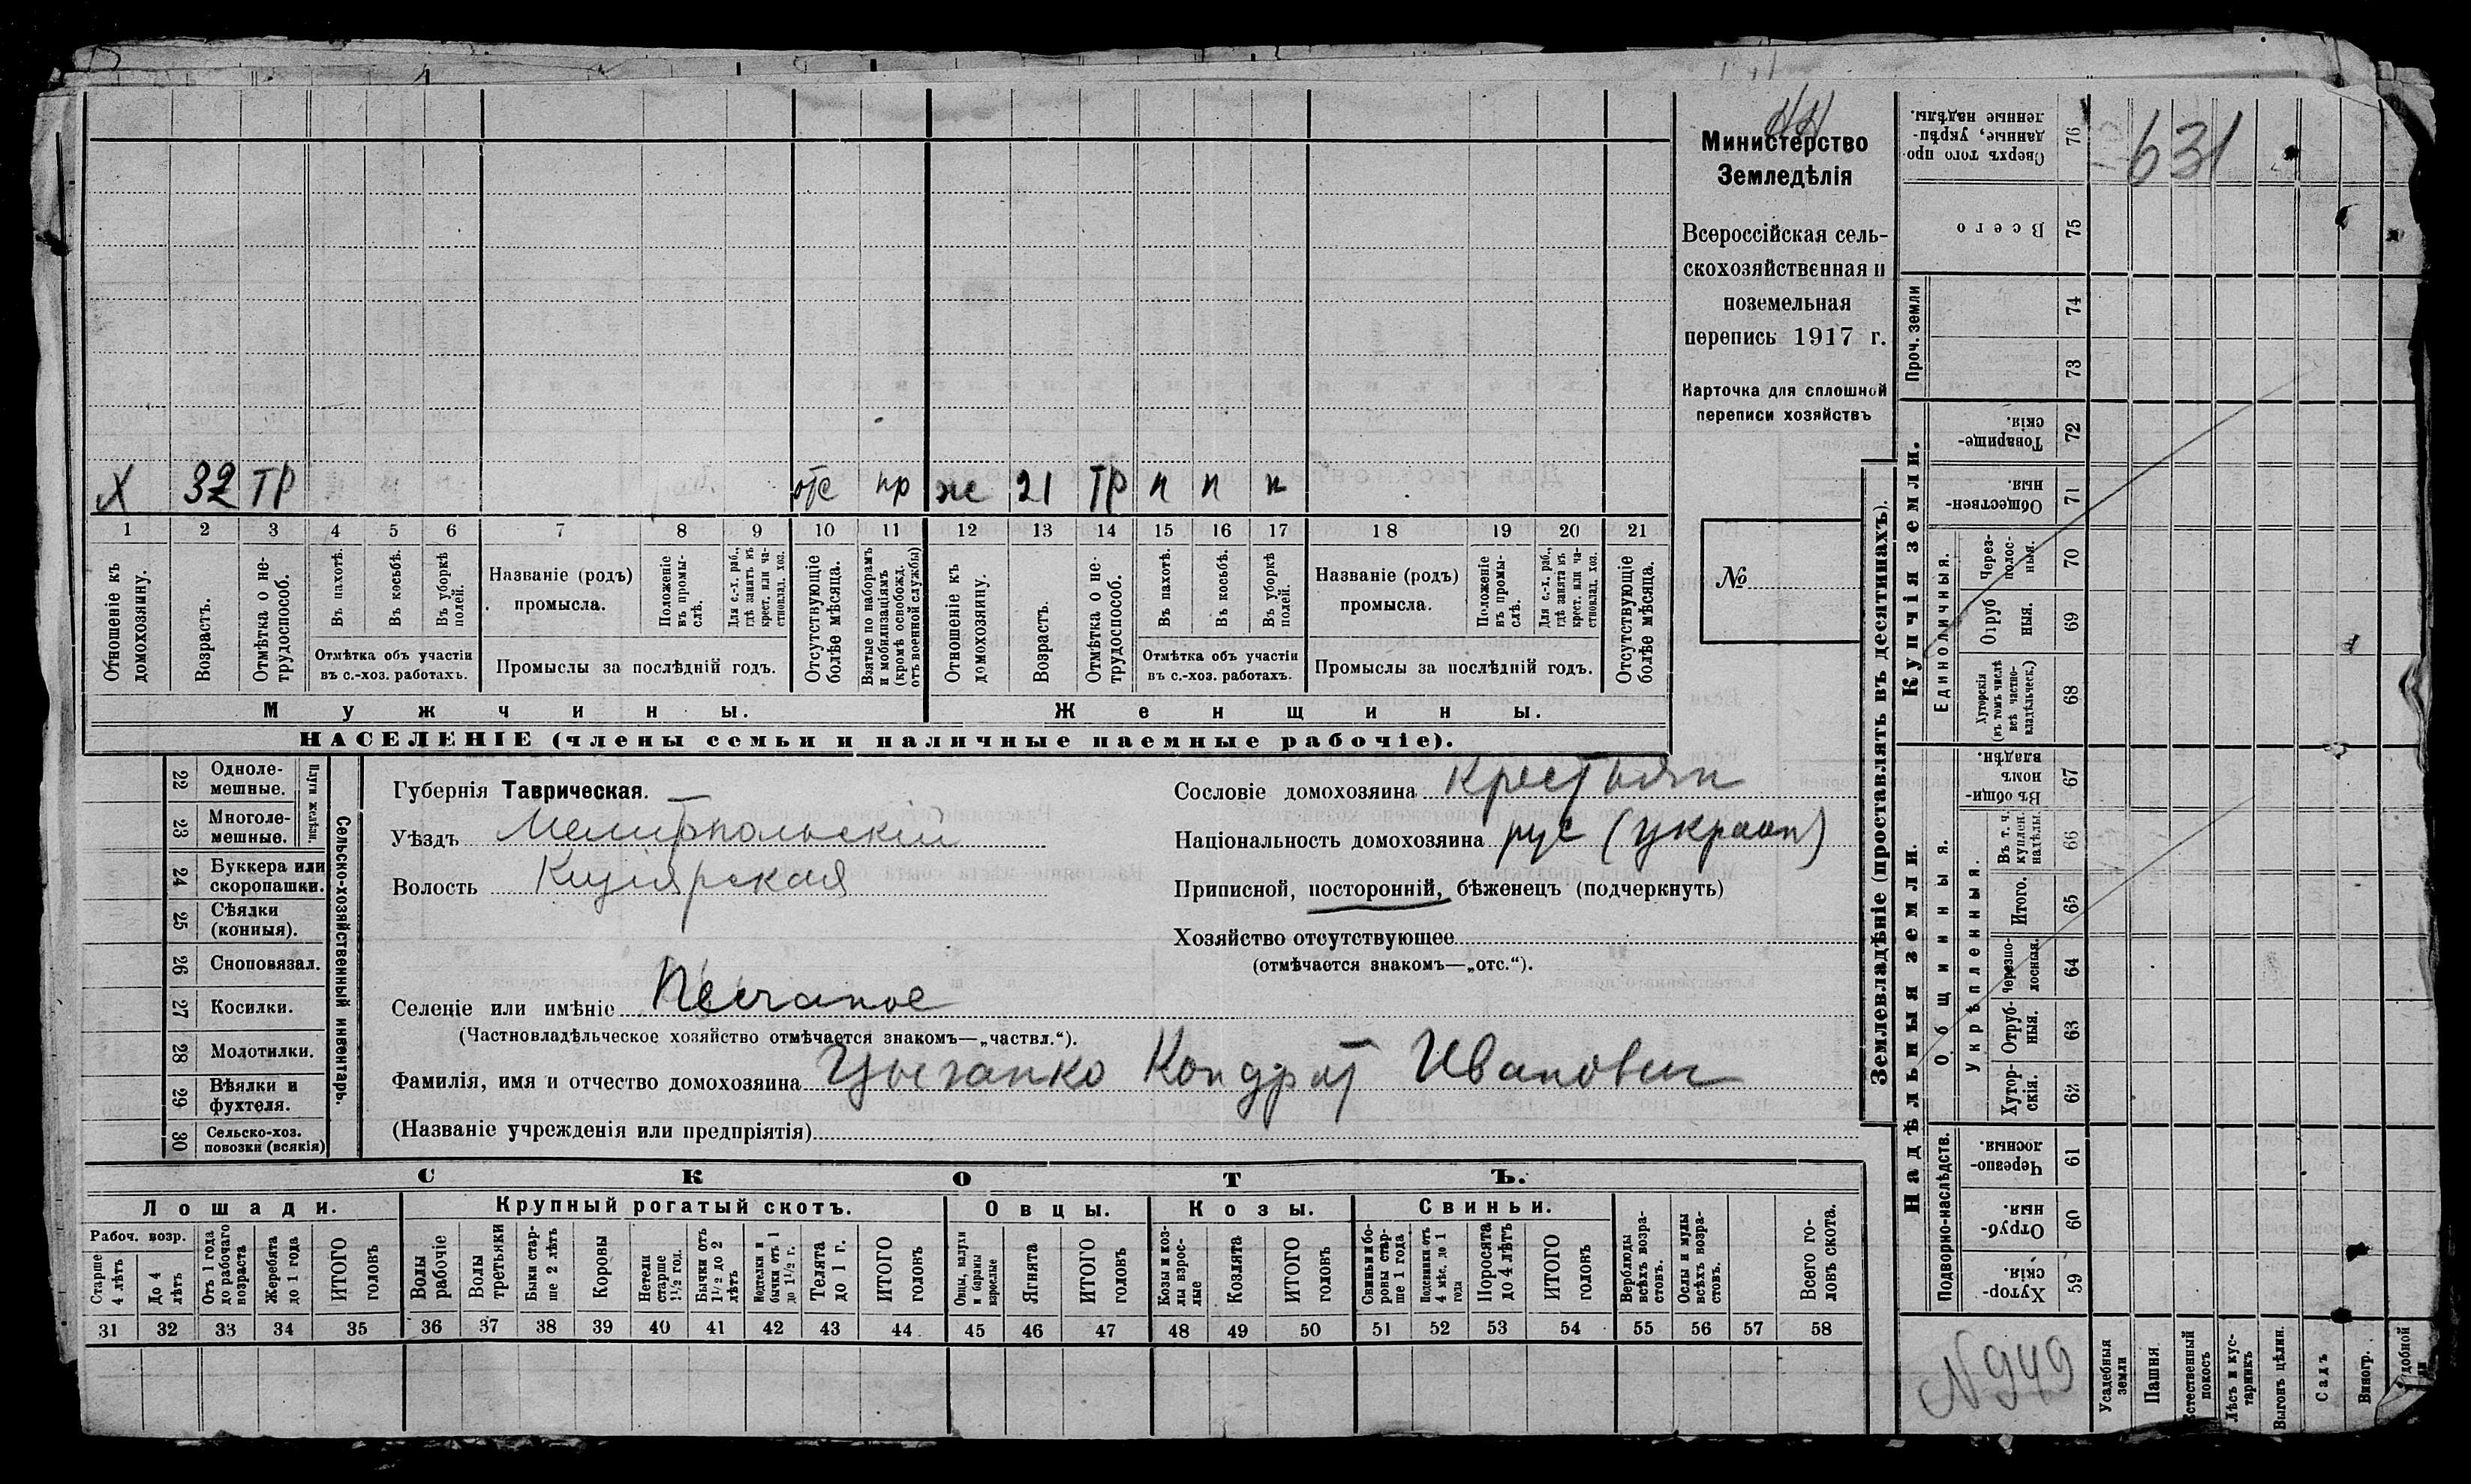 НН
Министерство
Земледѣлія
Всероссійская сель-
скохозяйственная и
поземельная
перепись 1917 г.
Карточка для сплошной
переписи хозяйствъ
№
Х 32 ТР отс пр ж 21 ТР п п п
1 2 3 4 5 6 7 8 9 10 11 12 13 14 15 16 17 18 19 20 21
Отношеніе къ домохозяину.
Возрастъ.
Отмѣтка о не-трудоспособ.
Въ пахотѣ.
Въ косьбѣ.
Въ уборкѣ полей.
Отмѣтка объ участіи
въ с.-хоз. работахъ.
Названіе (родъ)
промысла.
Положеніе въ промы-слѣ.
Для с.-х. раб., гдѣ занятъ къ крест. или ча-стновлад. хоз.
Промыслы за послѣдній годъ.
Отсутствующіе болѣе мѣсяца.
Взятые по наборамъ и мобилизаціямъ (кромѣ освобожд. отъ военной службы)
Отношеніе къ домохозяину.
Возрастъ.
Отмѣтка о не-трудоспособ.
Въ пахотѣ.
Въ косьбѣ.
Въ уборкѣ полей.
Отмѣтка объ участіи
въ с.-хоз. работахъ.
Названіе (родъ)
промысла.
Положеніе въ промы-слѣ.
Для с.-х. раб., гдѣ занята къ крест. или ча-стновлад. хоз.
Промыслы за послѣдній годъ.
Отсутствующіе болѣе мѣсяца.
Мужчины. Женщины.
НАСЕЛЕНІЕ (члены семьи и наличные наемные рабочіе).
22 Одноле-мешные.
23 Многоле-мешные.
Плуги желѣзн.
24 Буккера или скоропашки.
25 Сѣялки (конныя).
26 Сноповязал.
27 Косилки.
28 Молотилки.
29 Вѣялки и фухтеля.
30 Сельско-хоз. повозки (всякія)
Сельско-хозяйственный инвентарь.
Губернія Таврическая.
Уѣздъ Мелитопольскій
Волость Кизіярская
Сословіе домохозяина крестьян
Національность домохозяина рус (украин)
Приписной, посторонній, бѣженецъ (подчеркнуть)
Хозяйство отсутствующее
(отмѣчается знакомъ—„отс.“).
Селеніе или имѣніе Песчаное
(Частновладѣльческое хозяйство отмѣчается знакомъ—„частвл.“).
Фамилія, имя и отчество домохозяина Цыганко Кондрат Иванович
(Названіе учрежденія или предпріятія)
СКОТЪ.
Лошади. Крупный рогатый скотъ. Овцы. Козы. Свиньи.
Рабоч. возр.
Старше 4 лѣтъ
До 4 лѣтъ
Отъ 1 года до рабочаго возраста
Жеребята до 1 года
ИТОГО головъ
Волы рабочіе
Волы третьяки
Быки стар-ше 2 лѣтъ
Коровы
Нетели старше 1½ год.
Бычки отъ 1½ до 2 лѣтъ
Подтелки и бычки отъ 1 до 1½ г.
Телята до 1 г.
ИТОГО головъ
Овцы, валухи и бараны взрослые
Ягнята
ИТОГО головъ
Козы и коз-лы взрос-лые
Козлята
ИТОГО головъ
Свиньи и бо-ровы стар-ше 1 года
Подсвинки отъ 4 мѣс. до 1 года
Поросята до 4 лѣтъ
ИТОГО головъ
Верблюды всѣхъ возра-стовъ.
Ослы и мулы всѣхъ возра-стовъ.
Всего го-ловъ скота.
31 32 33 34 35 36 37 38 39 40 41 42 43 44 45 46 47 48 49 50 51 52 53 54 55 56 57 58
Землевладѣніе (проставлять въ десятинахъ).
Купчія земли.
Надѣльныя земли.
Сверхъ того про-данные, укрѣп-ленные надѣлы. 76
631
Всего 75
Проч. земли
74
73
Товарище-скія. 72
Обществен-ныя. 71
Единоличныя.
Через-полос-ныя. 70
Отруб ныя. 69
Хуторскія (въ томъ числѣ всѣ частно-владѣльческ.) 68
Общинныя.
Въ общи-номъ владѣн. 67
Укрѣпленныя.
Въ т. ч. куплен. надѣлы. 66
Итого. 65
Черезпо-лосныя. 64
Отруб-ныя. 63
Хутор-скія. 62
Подворно-наслѣдств.
Черезпо-лосныя. 61
Отруб-ныя. 60
Хутор-скія. 59
N 949
Усадебныя земли
Пашня
Естественный покосъ
Лѣсъ и кус-тарникъ
Выгонъ цѣлин.
Садъ
Виногр.